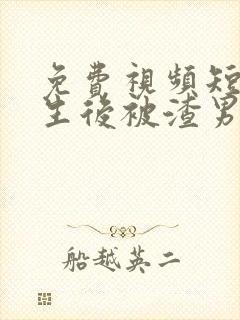 免費視頻短
生後被渣男
船越英二